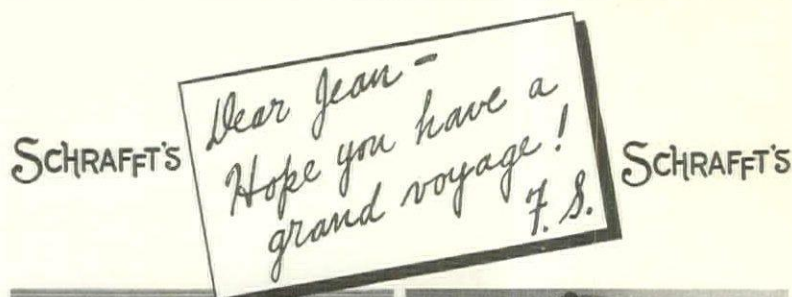 SCHRAFFT'S
Dear Jean -
Hope you have a
grand voyage!
F. S.
SCHRAFFT'S